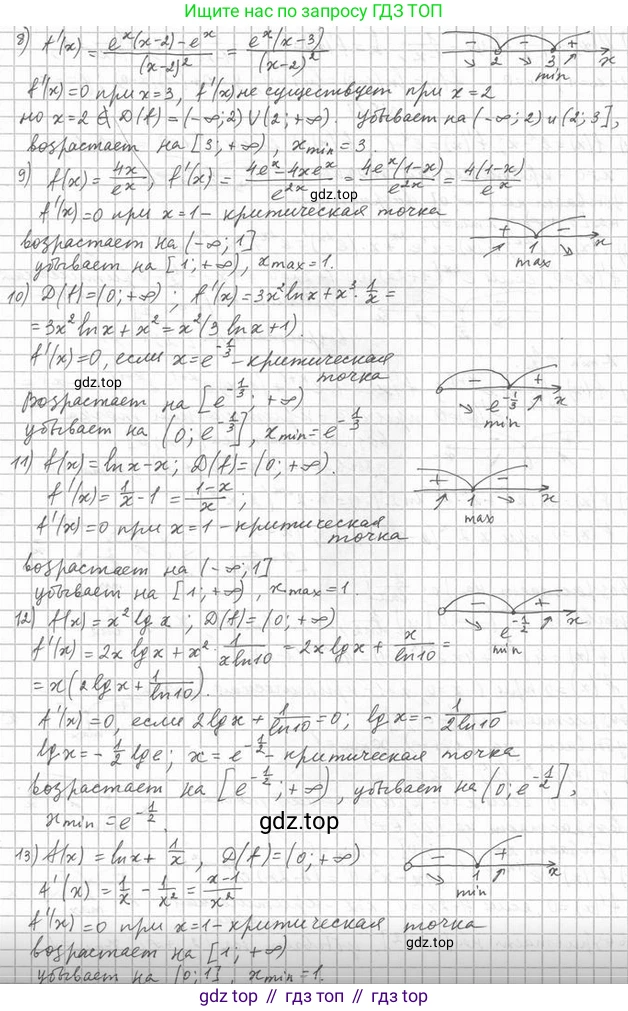 Ищите нас по запросу ГДЗ ТОП
8) f'(x) = (eˣ(x-2) - eˣ)/(x-2)² = eˣ(x-3)/(x-2)²
- - + 2 3 x min
f'(x)=0 при x=3, f'(x) не существует при x=2
но x=2 ∉ D(f)=(-∞;2)∪(2;+∞). убывает на (-∞;2) и (2;3],
возрастает на [3;+∞), x min = 3.
9) f(x) = 4x/eˣ, f'(x) = (4eˣ - 4xeˣ)/e²ˣ = 4eˣ(1-x)/e²ˣ = 4(1-x)/eˣ
gdz.top
f'(x)=0 при x=1 - критическая точка
+ - 1 x max
возрастает на (-∞;1]
убывает на [1;+∞), x max=1.
10) D(f)=(0;+∞); f'(x)=3x² ln x + x³·1/x =
=3x² ln x + x² = x²(3 ln x + 1).
f'(x)=0, если x=e^(-1/3) - критическая
точка
gdz.top
- + e^(-1/3) x min
возрастает на [e^(-1/3); +∞)
убывает на (0; e^(-1/3)], x min=e^(-1/3)
11) f(x)=ln x - x; D(f)=(0;+∞).
f'(x)= 1/x - 1 = (1-x)/x;
+ - 1 x max
f'(x)=0 при x=1 - критическая
точка
возрастает на (-∞;1]
убывает на [1;+∞), x max=1.
12) f(x)=x² lg x; D(f)=(0;+∞)
- + e^(-1/2) x min
f'(x)=2x lg x + x²· 1/(x ln10) = 2x lg x + x/ln10 =
= x(2 lg x + 1/ln10).
f'(x)=0, если 2 lg x + 1/ln10 = 0; lg x = - 1/(2 ln10)
lg x = - 1/2 lg e; x = e^(-1/2) - критическая точка
возрастает на [e^(-1/2); +∞), убывает на (0; e^(-1/2)],
x min = e^(-1/2).
gdz.top
13) f(x) = ln x + 1/x, D(f)=(0;+∞)
- + 1 x min
f'(x) = 1/x - 1/x² = (x-1)/x²
gdz.top
f'(x)=0 при x=1 - критическая точка
возрастает на [1;+∞)
убывает на (0;1], x min=1.
gdz.top // гдз.топ // гдз.top